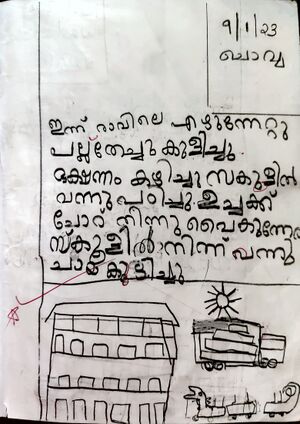 9/1/23
ചൊവ്വ
ഇന്ന് രാവിലെ എഴുന്നേറ്റു
പല്ല്തേച്ചു കുളിച്ചു
ഭക്ഷണം കഴിച്ചു സ്കൂളിൽ
വന്നു പഠിച്ചു ഉച്ചക്ക്
ചോറ് തിന്നു വൈകുന്നേരം
സ്കൂളിൽ നിന്ന് വന്നു
ചായ കുടിച്ചു